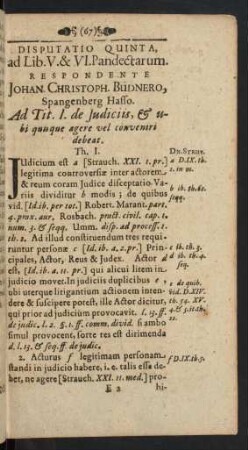 (67)
DISPUTATIO QUINTA,
ad Lib. V. & VI. Pandectarum.
RESPONDENTE
JOHAN. CHRISTOPH. BUDNERO,
Spangenberg Hasso.
Ad Tit. I. de Judiciis, & u-
bi quisque agere vel conveniri
debeat.
Th. I.
Judicium est a [Strauch. XXI. 1. pr.]
legitima controversiæ inter actorem
& reum coram Judice disceptatio. Va-
riis dividitur b modis; de quibus
vid. [Id. ib. per tot.] Robert. Marant. part.
4. prox. aur. Rosbach. pract. civil. cap. 1.
num. 3. & seqq. Umm. disp. ad process. 1.
th. 2. Ad illud constituendum tres requi-
runtur personæ c [Id. ib. a. 2. pr.] Prin-
cipales, Actor, Reus & Judex. Actor d
est, [Id. ib. a. 11. pr.] qui alicui litem in
judicio movet. In judiciis duplicibus e
ubi uterque litigantium actionem inten-
dere & suscipere potest, ille Actor dicitur,
qui prior ad judicium provocavit. l. 13. ff.
de judic. l. 2. §. 1. ff. comm. divid. si ambo
simul provocent, sorte res est dirimenda
d. l. 13. & seq. ff. de judic.
2. Acturus f legitimam personam
standi in judicio habere, i. e. talis esse de-
bet, ne agere [Strauch. XXI. 11. med.] pro-
E 2
hi-
Dn. Struv.
a D. IX. th.
1. in m.
b ib. th. 60.
seqq.
c ib. th. 3.
d ib. th. 4.
seq.
e de quib.
vid. D. XIV.
th. 54. XV.
f D. IX. th. 5.